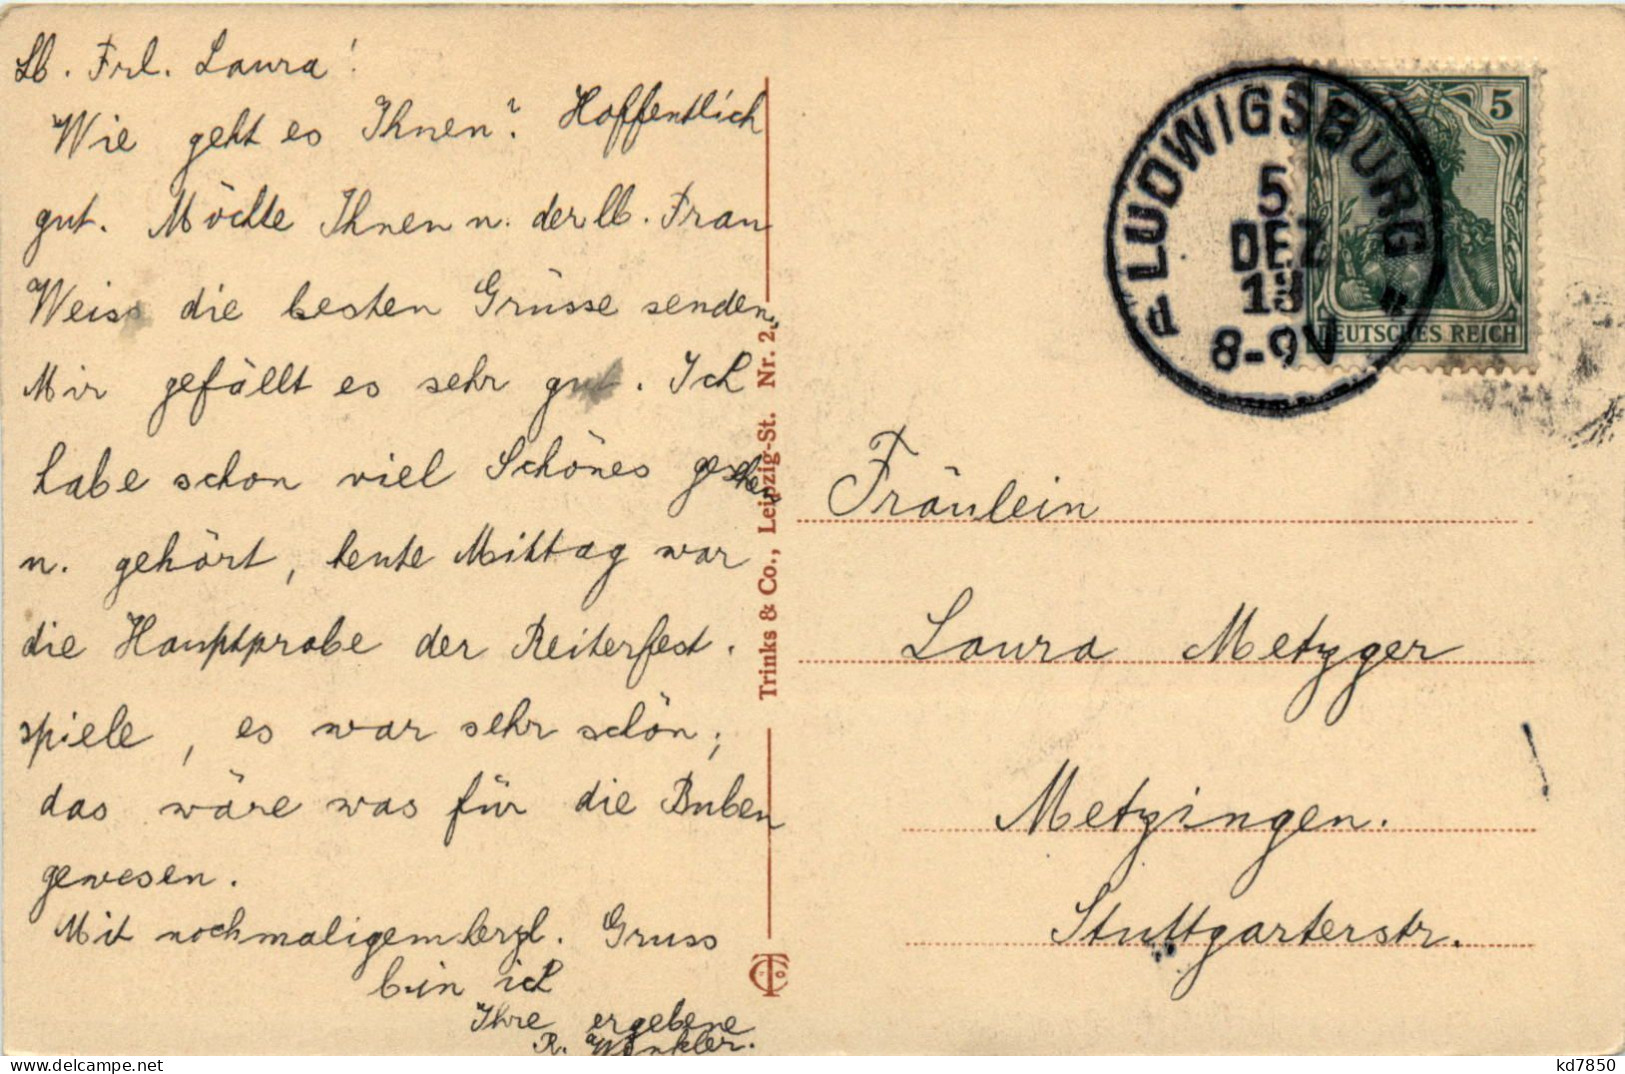 Lb. Frl. Laura!
Wie geht es Ihnen? Hoffentlich
gut. Möchte Ihnen u. der lb. Frau
Weiss die besten Grüsse senden,
Mir gefällt es sehr gut. Ich
habe schon viel Schönes gesehen
u. gehört, heute Mittag war
die Hauptprobe der Reiterfest.
spiele, es war sehr schön;
das wäre was für die Buben
gewesen.
Mit nochmaligem herzl. Gruss
bin ich
Ihre ergebene
R. Winkler.
Trinks & Co., Leipzig-St. Nr. 2.
TCo
LUDWIGSBURG
5
DEZ
13
8-9V
d
5
5
DEUTSCHES REICH
Fräulein
Laura Metzger
Metzingen.
Stuttgarterstr.
kd7850